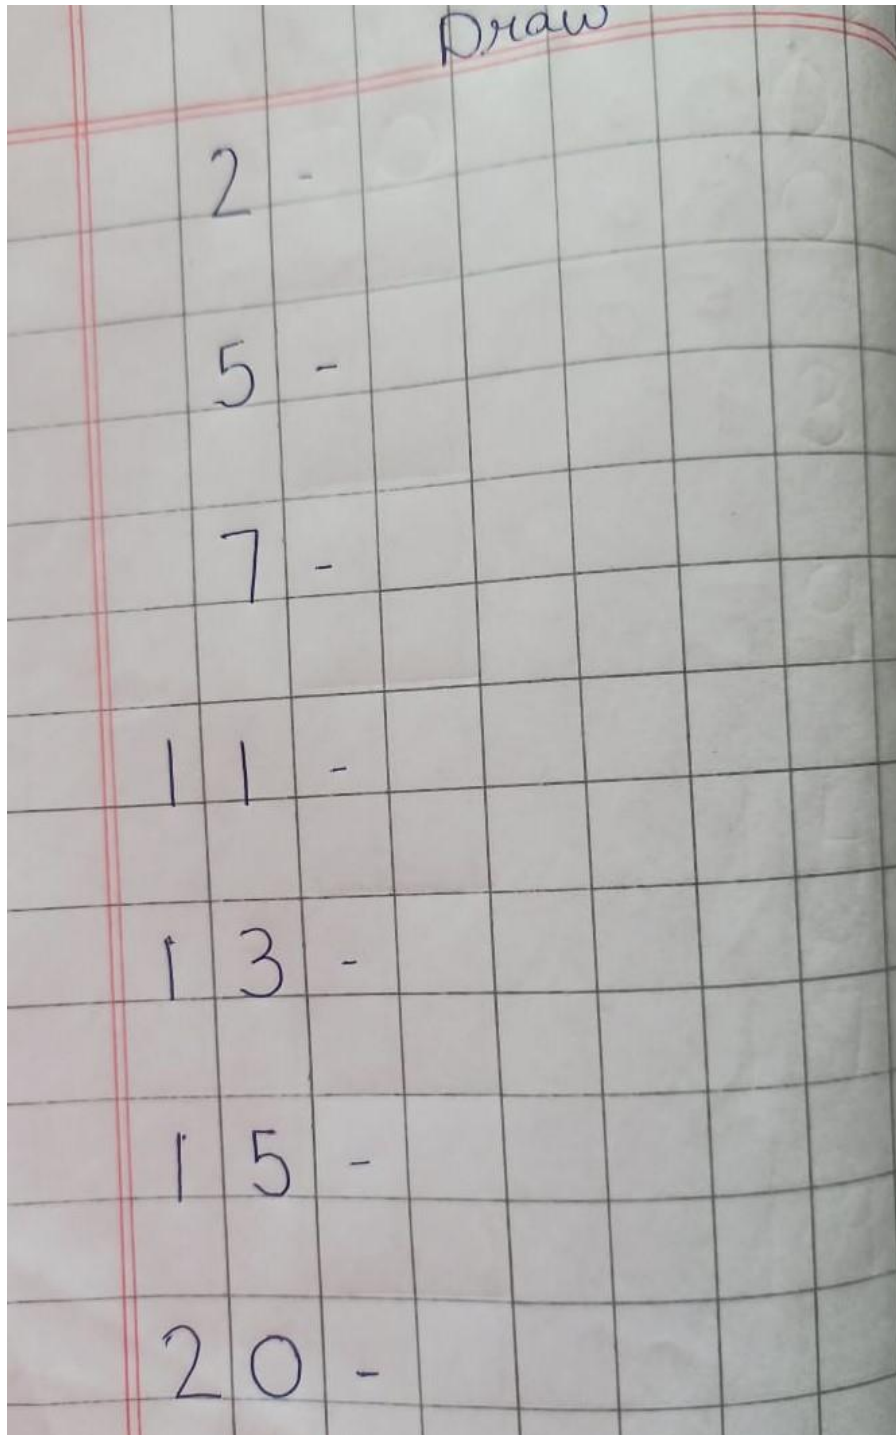 Draw
2 -
5 -
7 -
11 -
13 -
15 -
20 -